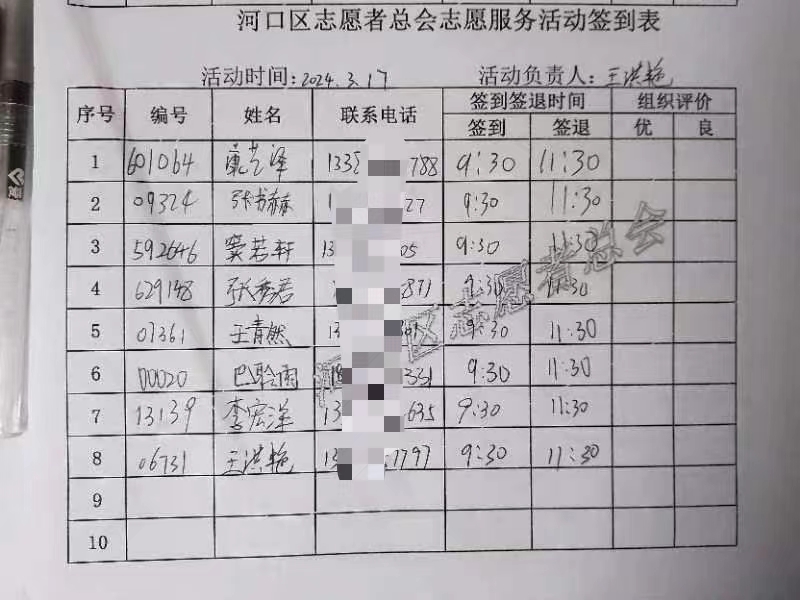 河口区志愿者总会志愿服务活动签到表
活动时间:2024.3.17 活动负责人:王洪艳
序号 编号 姓名 联系电话 签到签退时间 组织评价
签到 签退 优 良
1 601064 康艺泽 133 788 9:30 11:30
2 09324 张书赫 1 27 9:30 11:30
3 592646 窦若轩 13 05 9:30 11:30
4 629148 张秀君 871 9:30 11:30
5 07361 王青然 13 9:30 11:30
6 00020 巴聆雨 331 9:30 11:30
7 13139 李宏洋 13 635 9:30 11:30
8 06731 王洪艳 13 1797 9:30 11:30
9
10
区志愿者总会